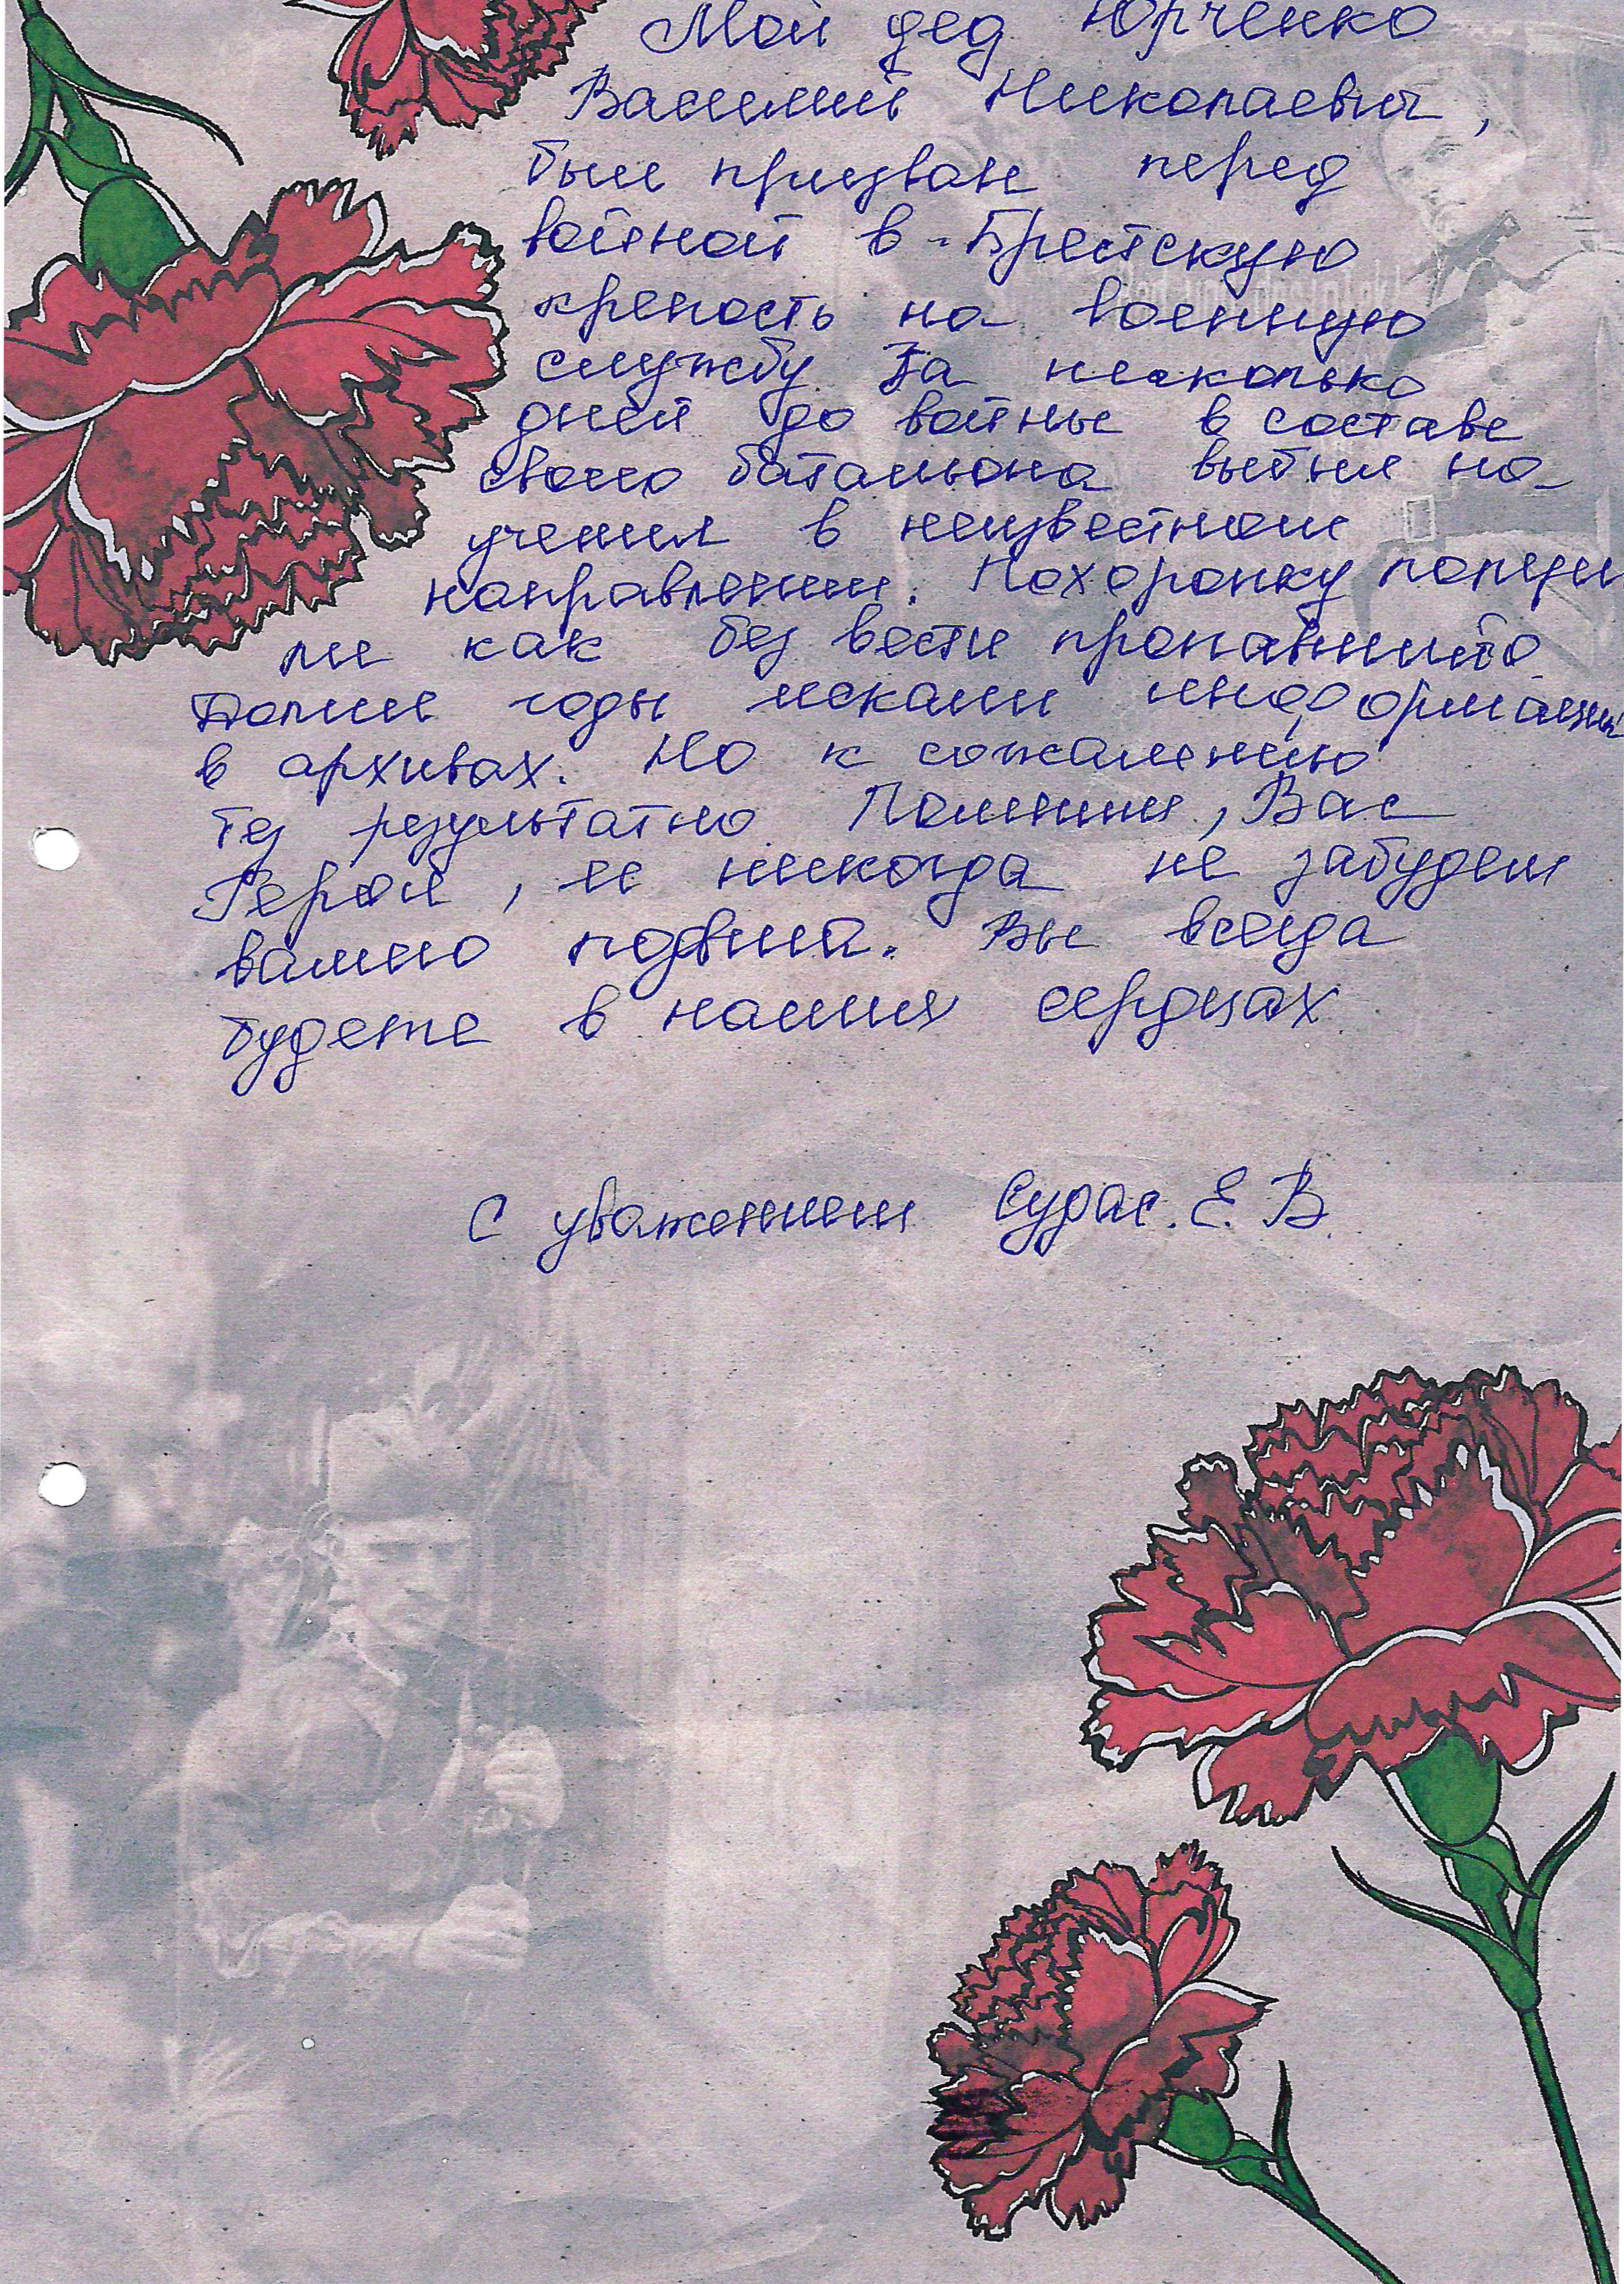 Мой дед Юрченко
Василий Николаевич,
был призван перед
войной в Брестскую
крепость на военную
службу За несколько
дней до войны в составе
своего батальона выбыл на
учения в неизвестном
направлении. Похоронку получи
ли как без вести пропавшего
Долгие годы искали информацию
в архивах. Но к сожалению
без результатно Помним, Вас
Герои, и никогда не забудем
вашего подвига. Вы всегда
будете в наших сердцах
С уважением Сурас. Е. В.